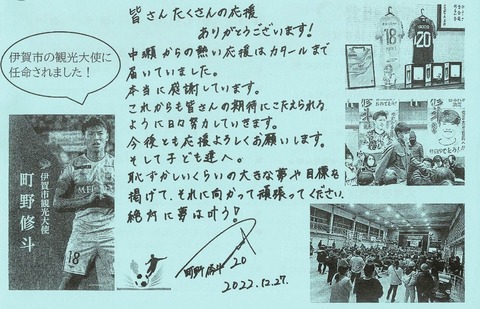 皆さんたくさんの応援
ありがとうございます!
中瀬からの熱い応援はカタールまで
届いていました。
本当に感謝しています。
これからも皆さんの期待にこたえられる
ように日々努力していきます。
今後とも応援よろしくお願いします。
そして子ども達へ。
恥ずかしいくらいの大きな夢や目標を
掲げて、それに向かって頑張ってください。
絶対に夢は叶う!
町野修斗 20
2022.12.27.
伊賀市の観光大使に
任命されました!
伊賀市観光大使
町野修斗
18
18
20